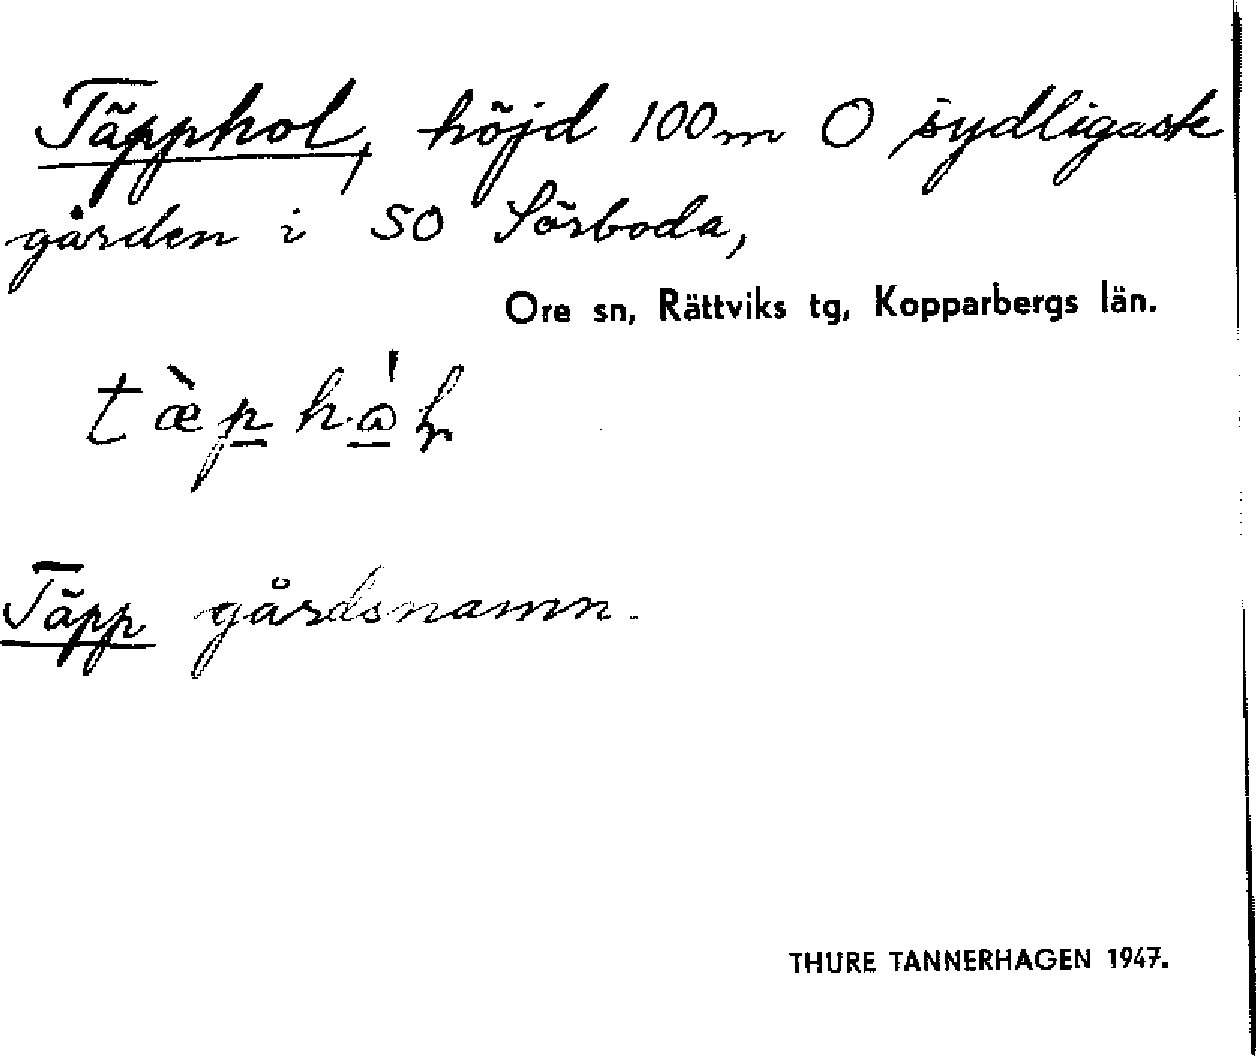 Täpphol, höjd 100 m O sydligaste
gården i SO Sörboda,
Ore sn, Rättviks tg, Kopparbergs län.
Täpp gårdsnamn.
THURE TANNERHAGEN 1947.